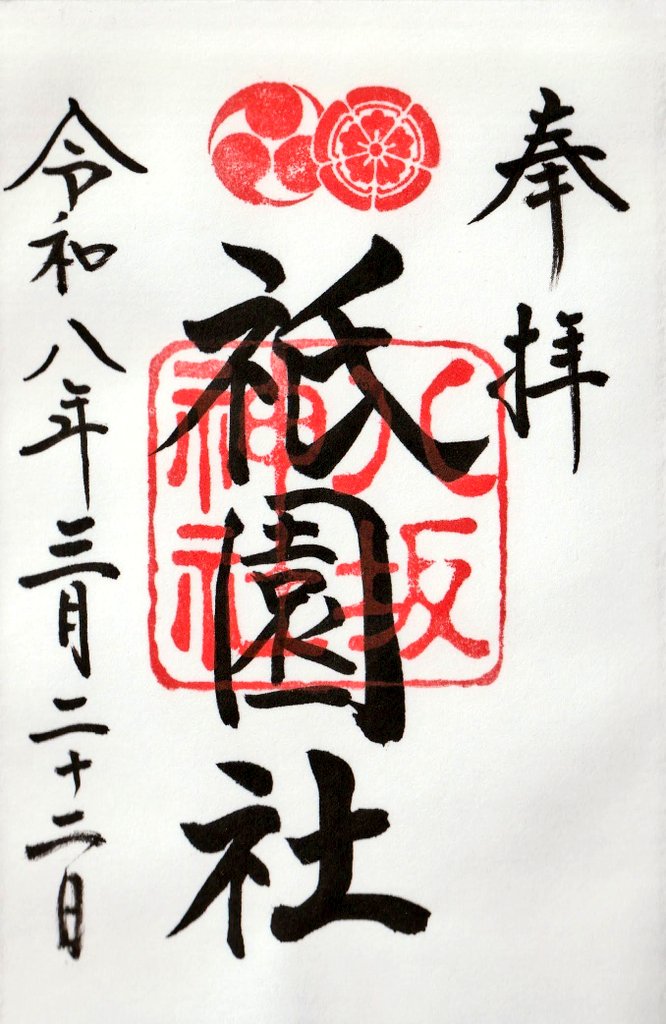 奉拝
祇園社
八坂
神社
令和八年三月二十二日